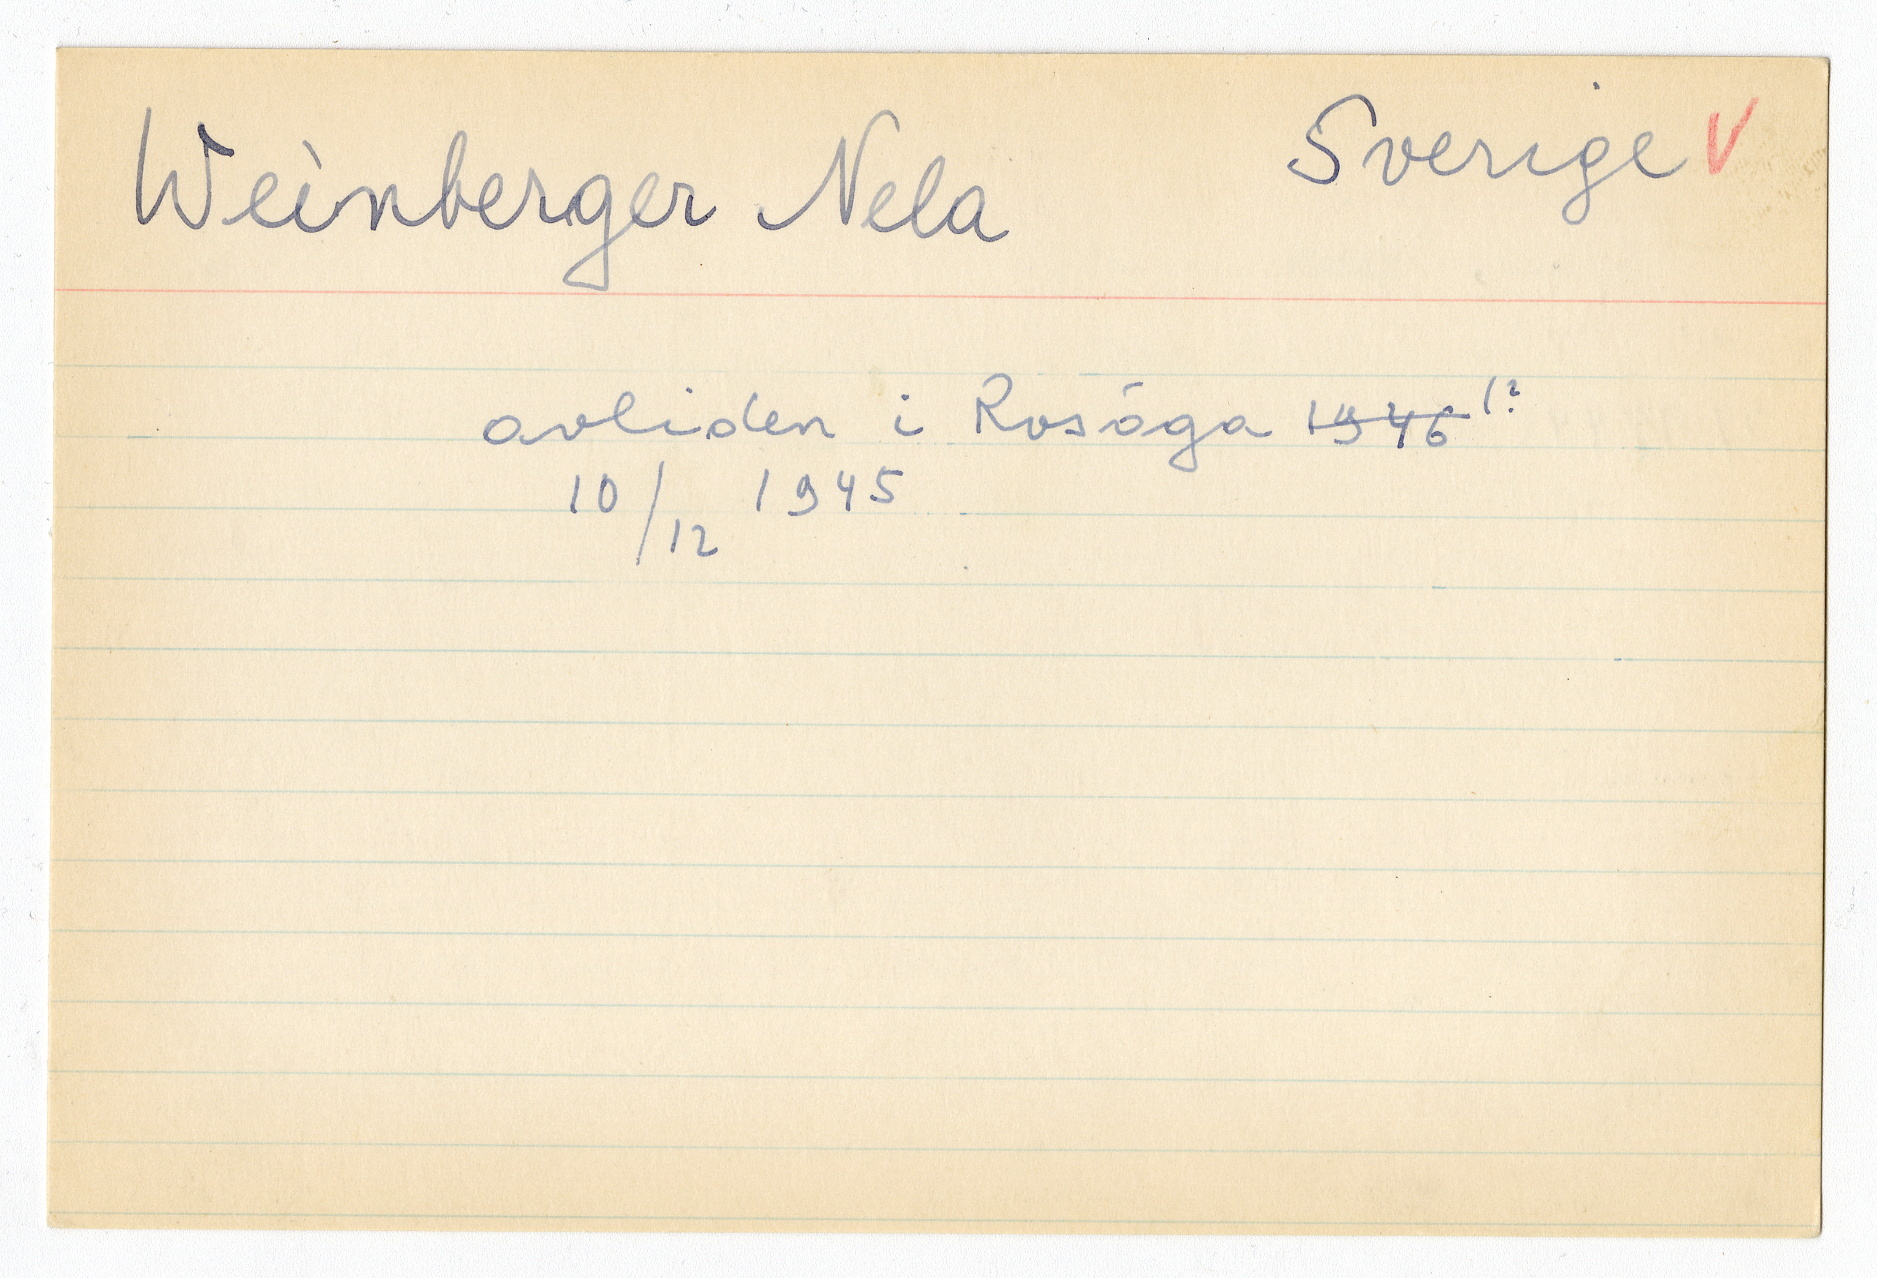 Weinberger Nela Sverige V
avliden i Rosöga 1946 1?
10/12 1945